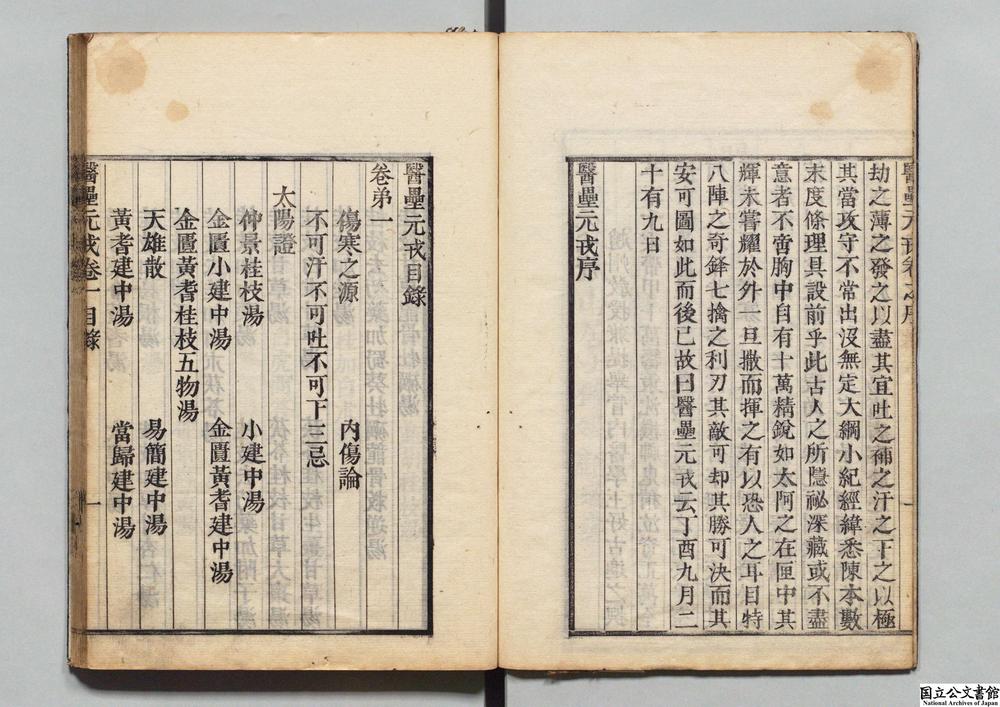 劫之薄之發之以盡其宜吐之補之汗之下之以極
其當攻守不常出沒無定大綱小紀經緯悉陳本數
末度條理具設前乎此古人之所隱祕深藏或不盡
意者不啻胸中自有十萬精銳如太阿之在匣中其
輝未嘗耀於外一旦撒而揮之有以恐人之耳目特
八陣之奇鋒七擒之利刃其敵可却其勝可決而其
安可圖如此而後已故曰醫壘元戎云丁酉九月二
十有九日
醫壘元戎序
醫壘元戎目錄
卷弟一
傷寒之源 內傷論
不可汗不可吐不可下三忌
太陽證
仲景桂枝湯 小建中湯
金匱小建中湯 金匱黃耆建中湯
金匱黃耆桂枝五物湯
天雄散 易簡建中湯
黃耆建中湯 當歸建中湯
醫壘元戎卷一 目錄 一
国立公文書館
National Archives of Japan